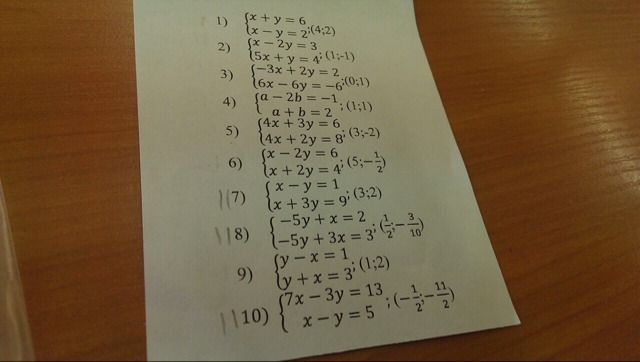 1) {x + y = 6
x − y = 2 ;(4;2)
2) {x − 2y = 3
5x + y = 4 ; (1;-1)
3) {−3x + 2y = 2
6x − 6y = −6 ;(0;1)
4) {a − 2b = −1
a + b = 2 ; (1;1)
5) {4x + 3y = 6
4x + 2y = 8 ; (3;-2)
6) {x − 2y = 6
x + 2y = 4 ; (5;−1/2)
7) {x − y = 1
x + 3y = 9 ; (3;2)
8) {−5y + x = 2
−5y + 3x = 3 ; (1/2;−3/10)
9) {y − x = 1
y + x = 3 ; (1;2)
10) {7x − 3y = 13
x − y = 5 ; (−1/2;−11/2)